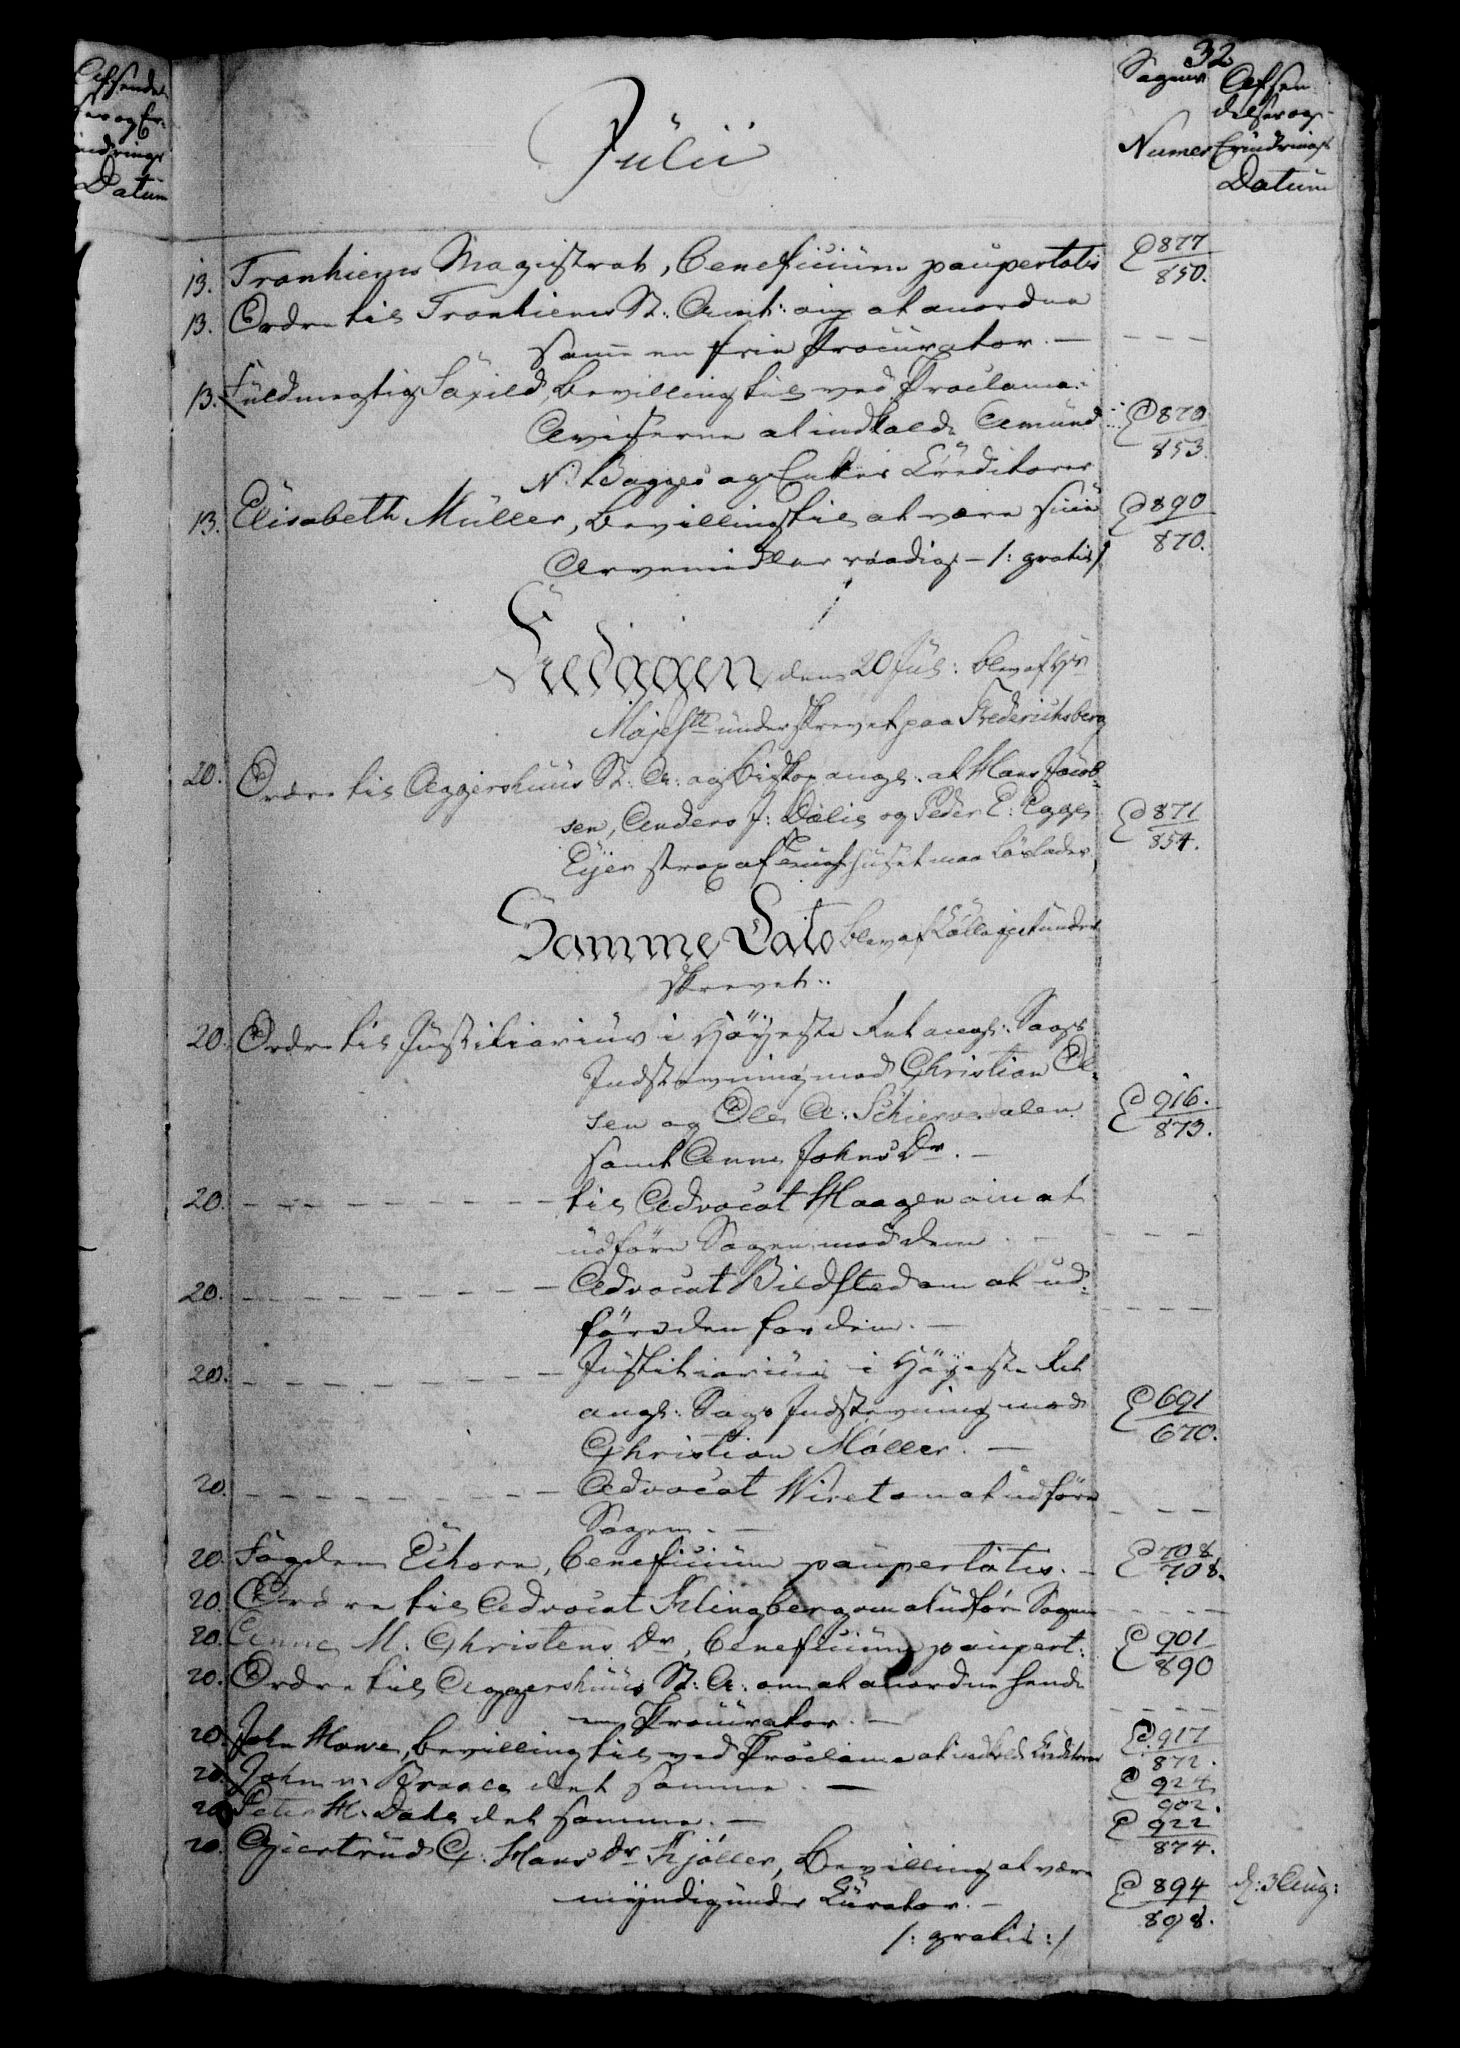 32.
Afsendel-
ses og Er-
indrings
Datum
Sagens
Numer
Afsen-
delses og
Erindrings
Datum
Julii
13. Tronhiems Magistrat, beneficium paupertatis E 877/850.
13. Ordre til Tronhiems St: Amt: om at anordne
samme en frie Procurator. — – – –
13. Fuldmegtig Saxild, bevilling til ved Proclama i
Aviserne at indkalde Amund E 870/853.
N: Bagges og Enkes Creditorer
13. Elisabeth Müller, bevilling til at være sine E 890/870.
Arvemidler raadig — /: gratis :/
Fredagen den 20 Jul: blev af Hs
Majestt underskrevet paa Frederichsberg
20. Ordre til Aggershuus St: A: og Biskop angl: at Hans Jacob-
sen, Anders J: Dælie og Peder E: Egges E 871/854.
Eijer strax af Tugthuset maa løslades,
Samme Dato blev af Collegiet under-
skrevet:
20. Ordre til Justitiarius i Höyeste Ret angl: Sags
Indstevning mod Christian Ol-
sen og Ole A: Schiervedalen E 916./873.
samt Anne Johns Dr. —
20. – – – – til Advocat Haagen om at
udföre Sagen mod dem. – – –
20. – – – – Advocat Bildsted om at ud-
före den for dem. — – – –
20. – – – – Justitiarius i Höyeste Ret
angl: Sags Indstevning mod E 691/670.
Christian Møller. —
20. – – – – Advocat Wivet om at udföre
Sagen. — – – –
20. Fogden Eichorn, beneficium paupertatis. — E 708/708.
20. Ordre til Advocat Klingberg om at udföre Sagen – – –
20. Anne M: Christens Dr, beneficium paupert: E 901/890
20. Ordre til Aggershuus St: A: om at anordne hende
en Procurator. — – – –
20. John Howe, bevilling til ved Proclama at indkalde Creditorer E 917/872.
20. John n: Braace det samme. — E 924/902.
20. Peter H: Dahl det samme. — E 922/874.
20. Giertrud C: Hans Dr Kjøller, Bevilling at være
myndig under Curator. — E 894/898. d: 3 Aug:
/: gratis :/